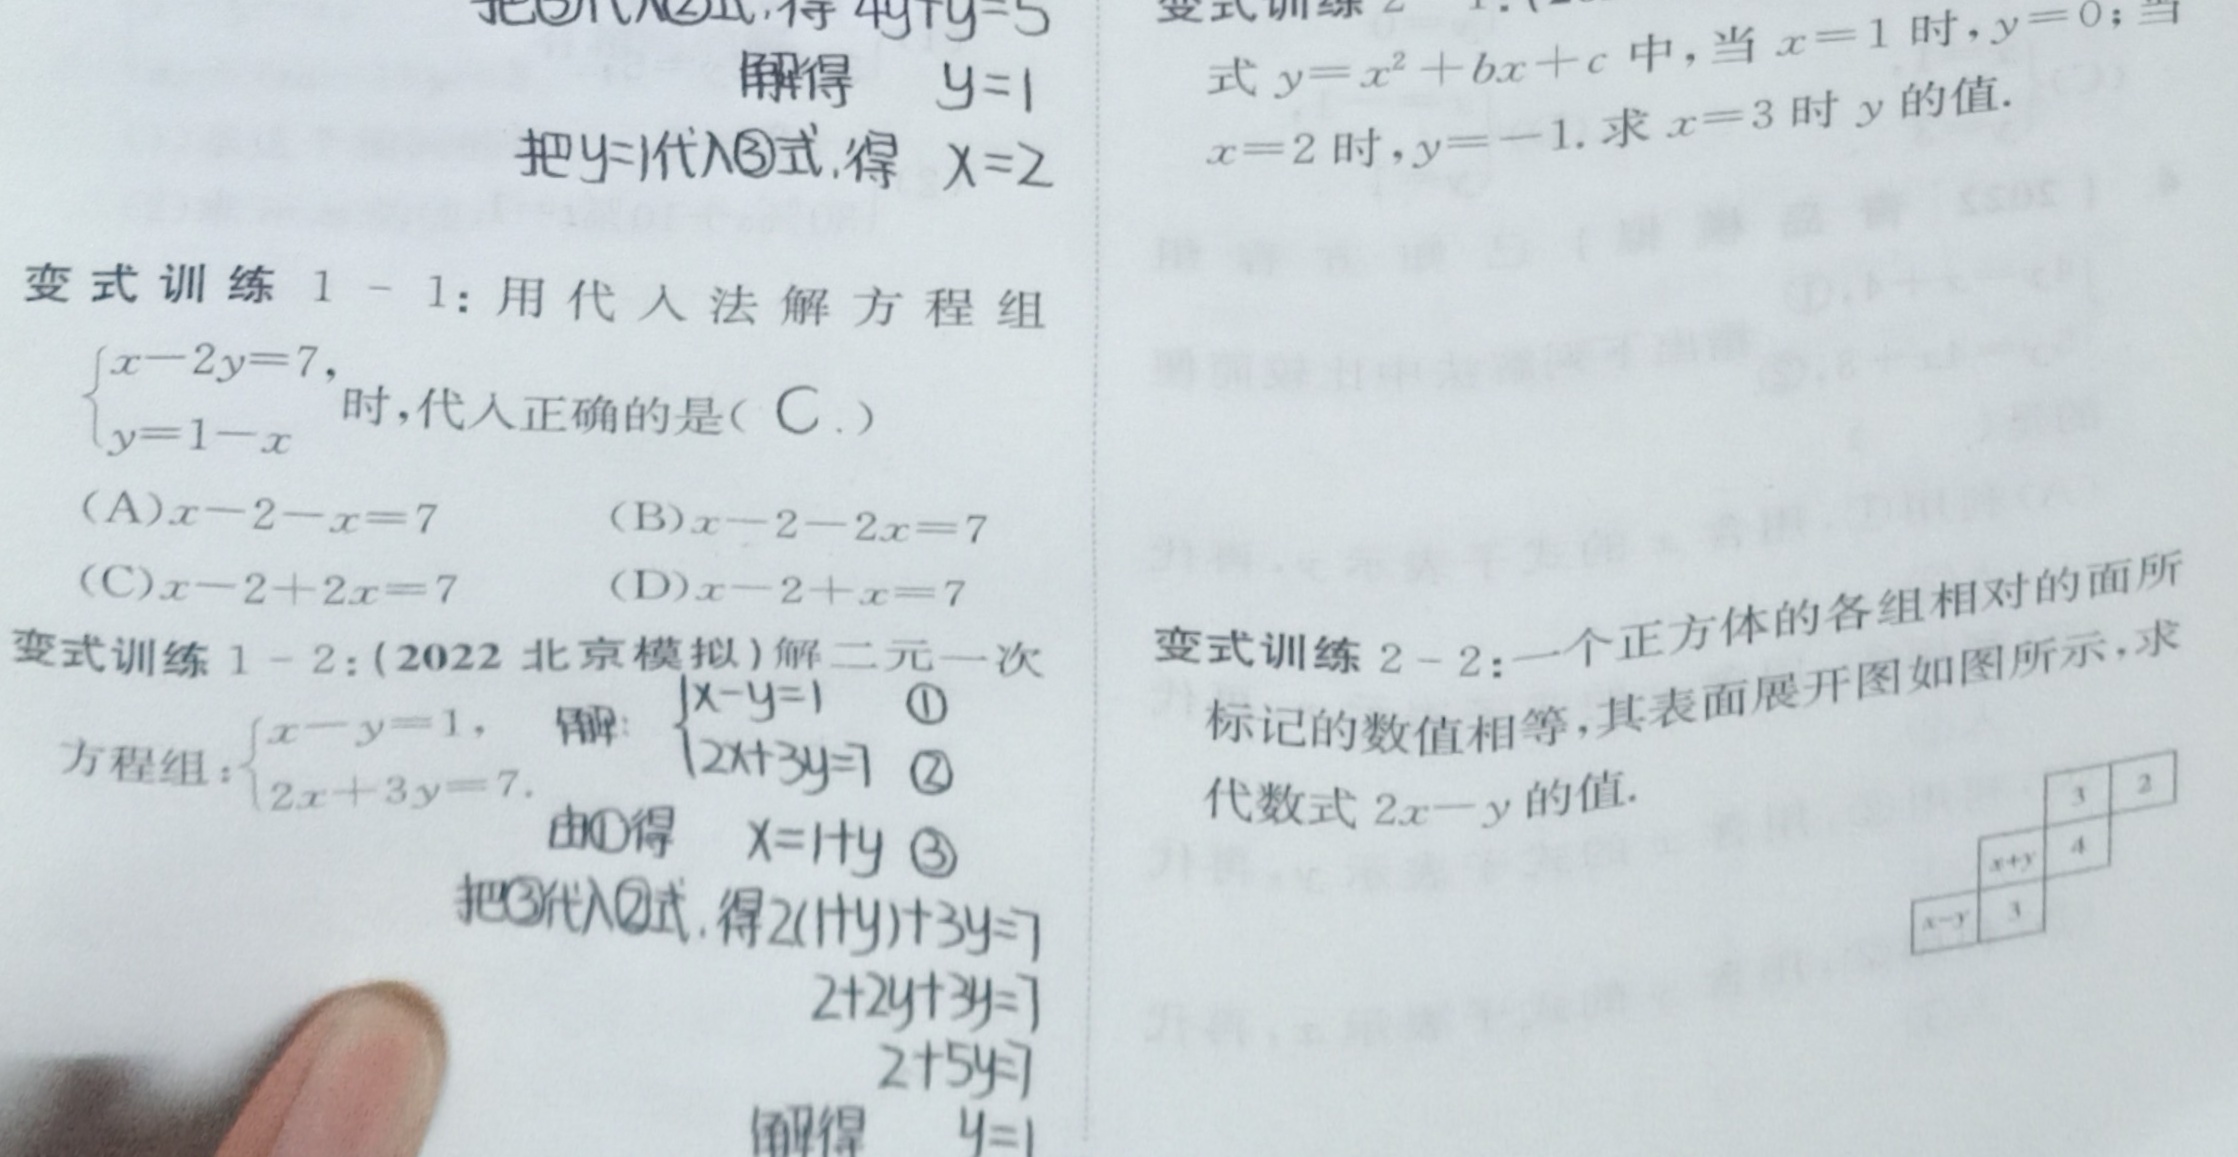 把③代入②式,得 4y+y=5
解得 y=1
把y=1代入③式,得 x=2
变式训练 1-1:用代入法解方程组
{x-2y=7,
y=1-x
时,代入正确的是( C. )
(A)x-2-x=7 (B)x-2-2x=7
(C)x-2+2x=7 (D)x-2+x=7
变式训练 1-2:(2022 北京模拟)解二元一次
方程组:{x-y=1,
2x+3y=7.
解: {x-y=1 ①
2x+3y=7 ②
由①得 x=1+y ③
把③代入②式,得2(1+y)+3y=7
2+2y+3y=7
2+5y=7
解得 y=1
变式训练 2-1:(
式 y=x²+bx+c 中,当 x=1 时,y=0;当
x=2 时,y=-1.求 x=3 时 y 的值.
变式训练 2-2:一个正方体的各组相对的面所
标记的数值相等,其表面展开图如图所示,求
代数式 2x-y 的值.
3 2
x+y 4
x-y 3